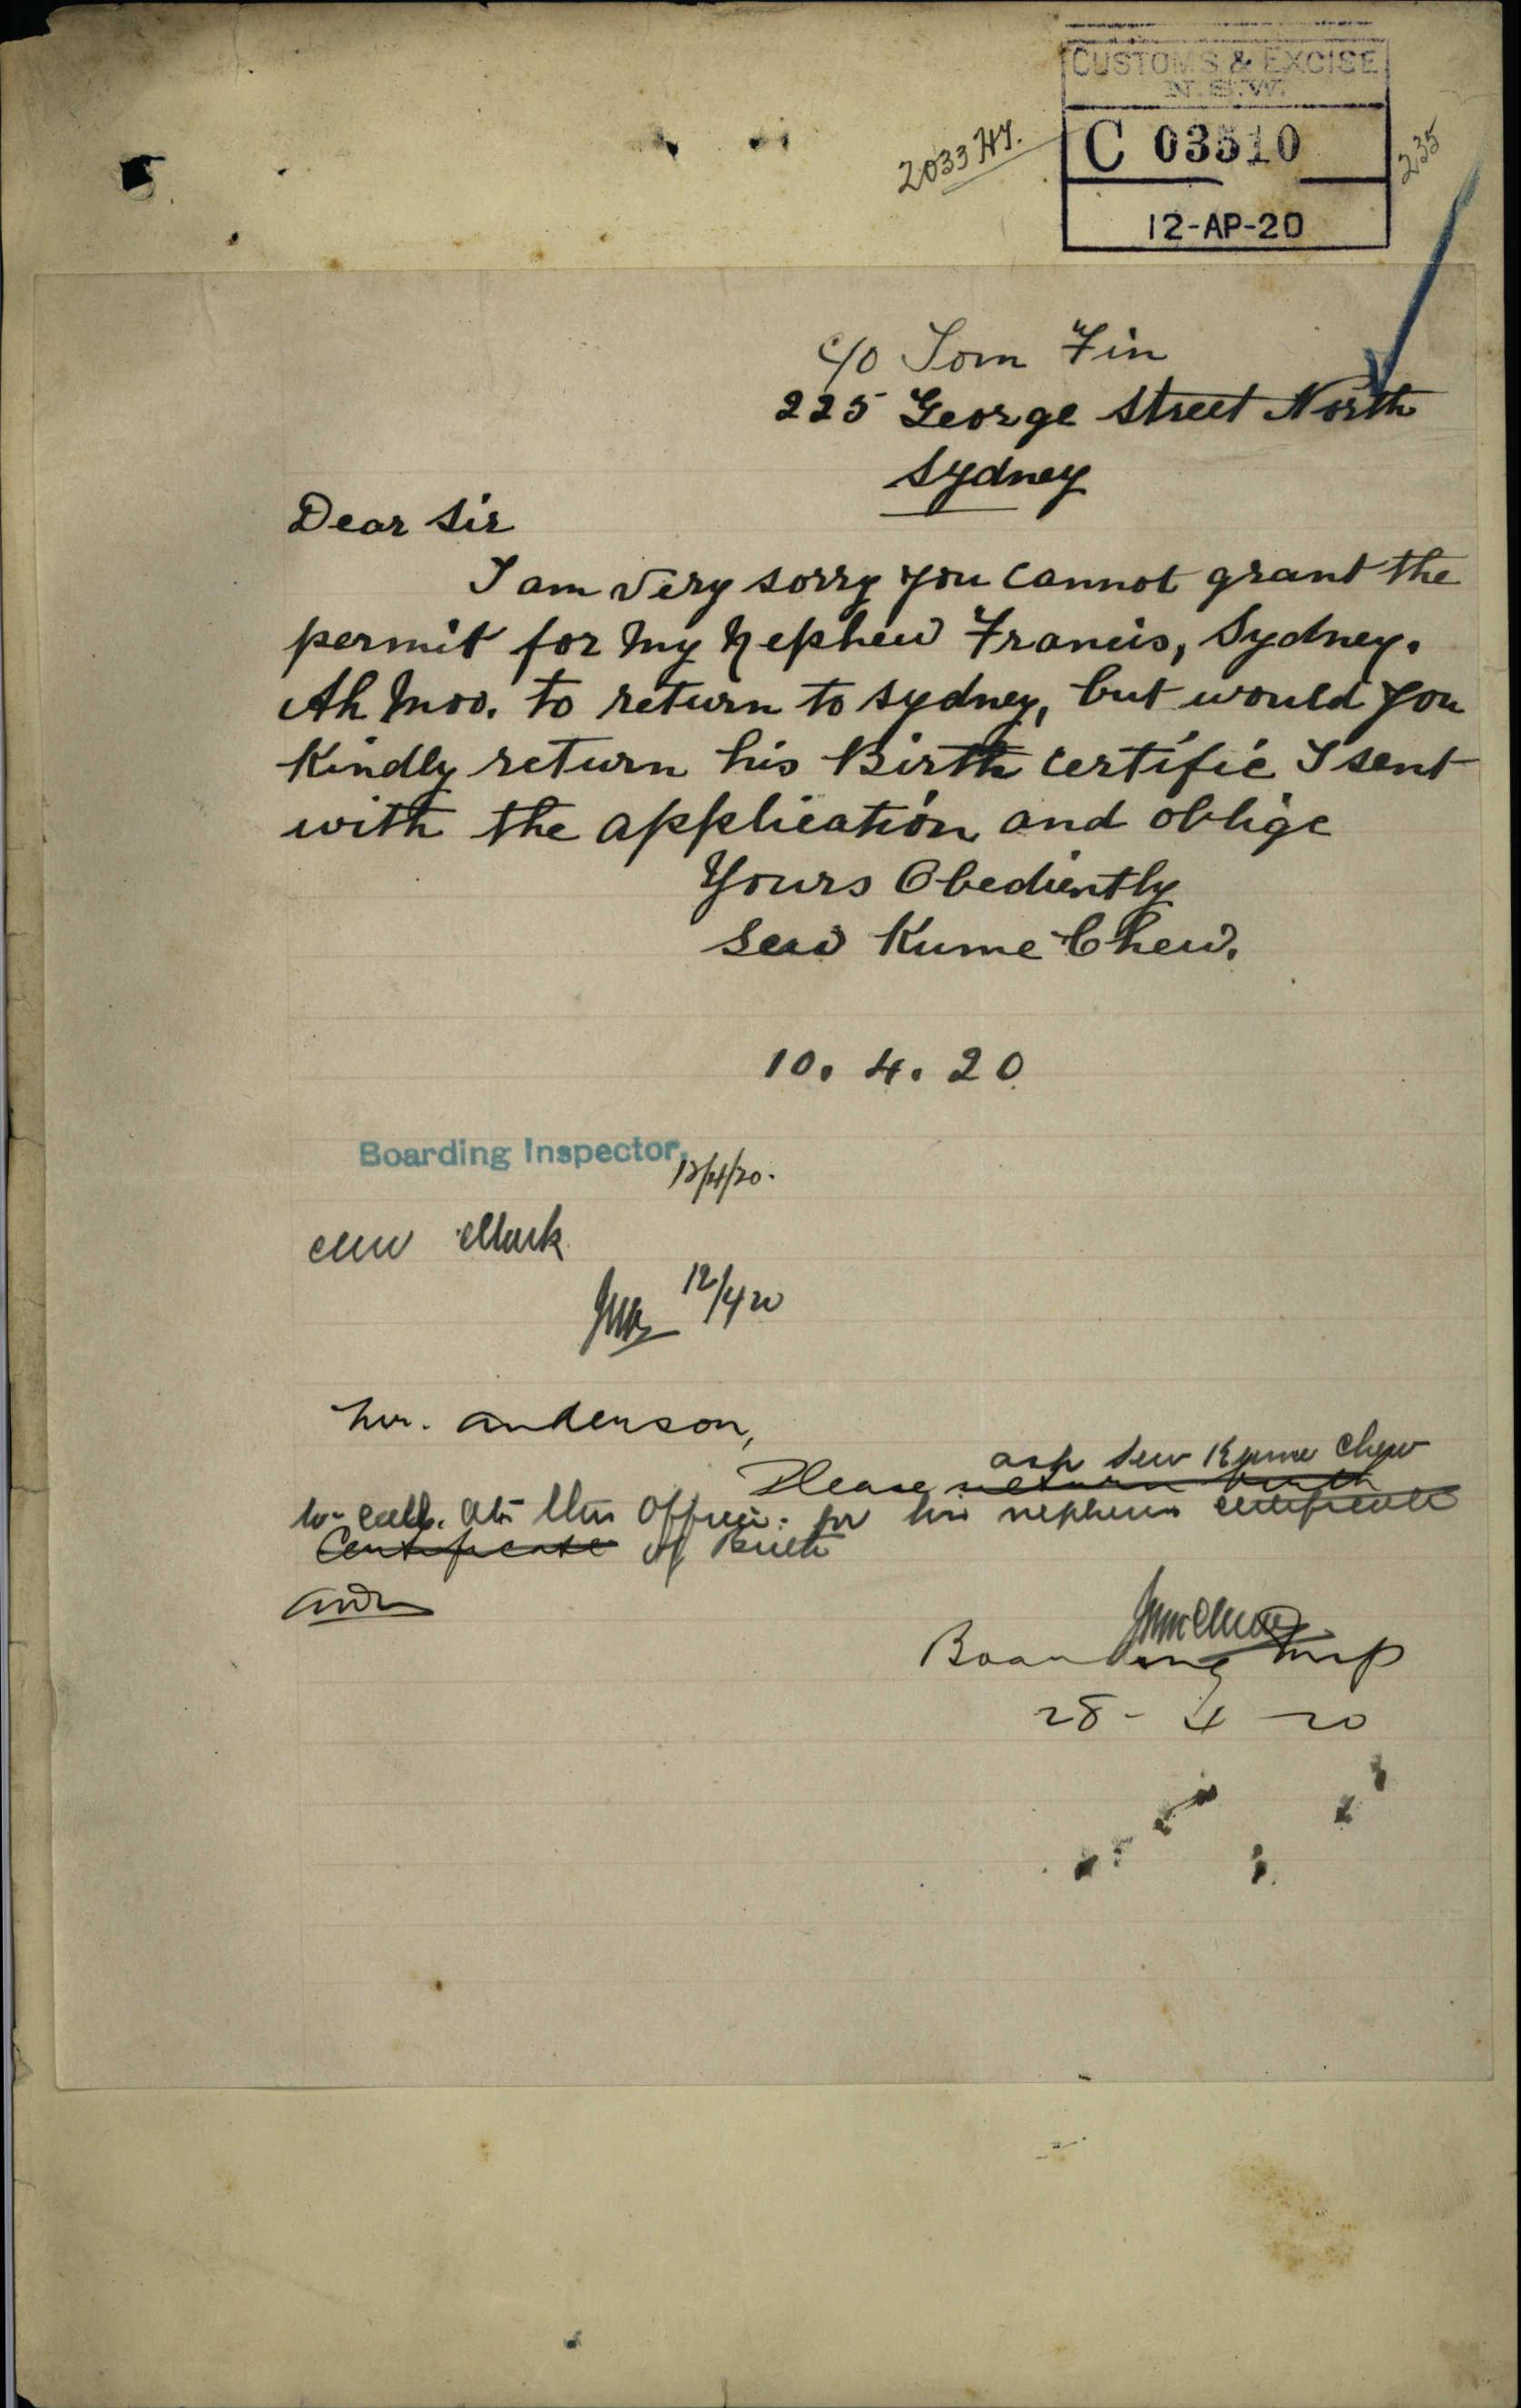 CUSTOMS & EXCISE
N.S.W.
2033
C 03510
235
12-AP-20
c/o Tom Fin
225 George Street North
Sydney
Dear Sir
I am very sorry you cannot grant the
permit for my Nephew Francis, Sydney.
Ah Moo. to return to Sydney, but would you
Kindly return his Birth certific I sent
with the application and oblige
Yours Obediently
Sew Kume Chew.
10. 4. 20
Boarding Inspector,
12/4/20.
12/4/20
Mr. Anderson,
ask Sew Kume Chew
Please return birth
to call at this Office for his nephews certificate
Certificate of Birth
Boarding Insp
28-4-20